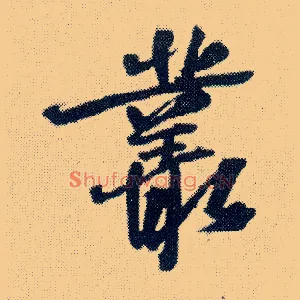 叢
Shufawang.CN